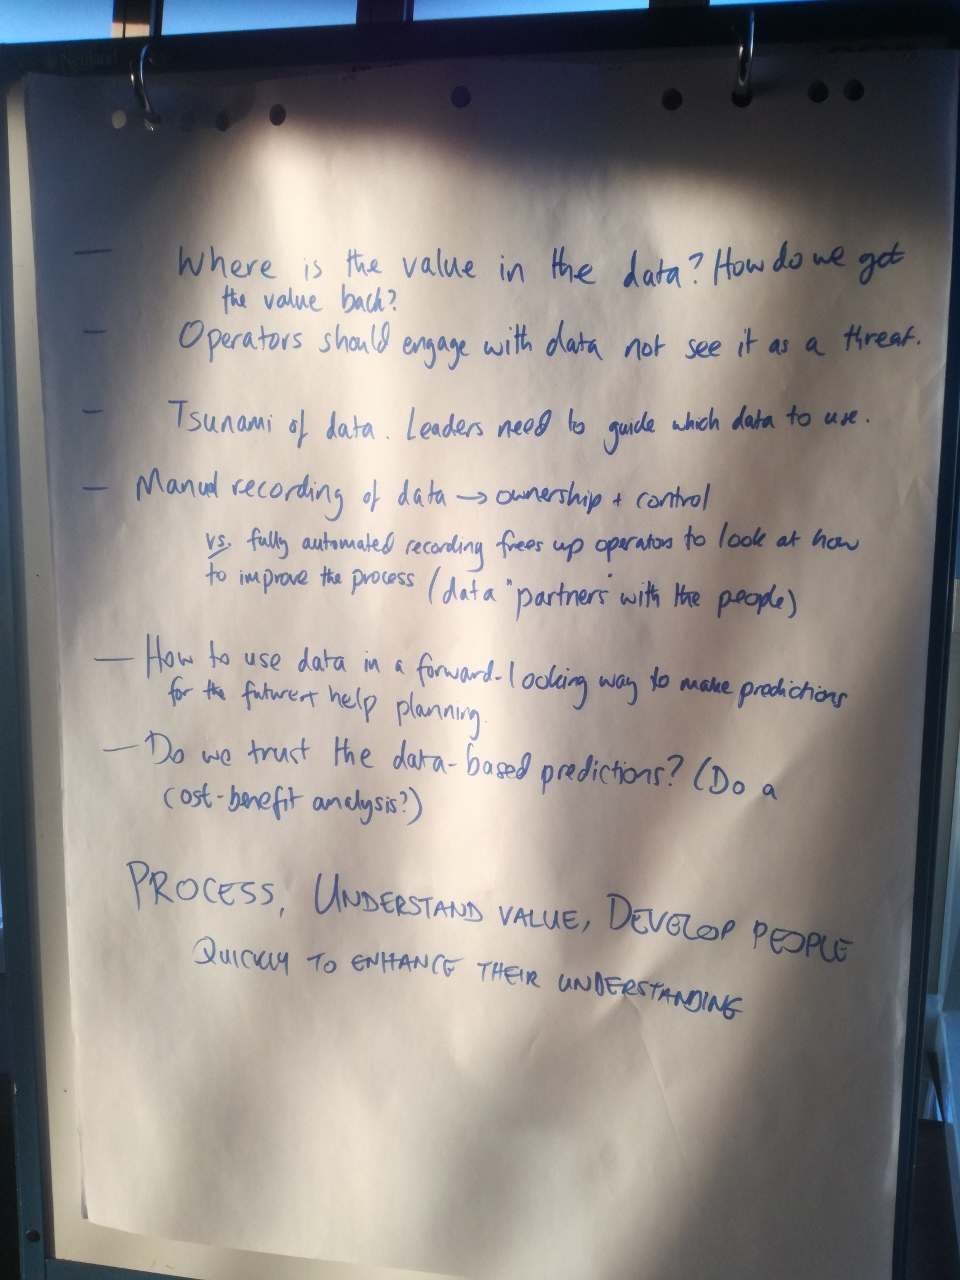 Neuland
— Where is the value in the data? How do we get
the value back?
— Operators should engage with data not see it as a threat.
— Tsunami of data. Leaders need to guide which data to use.
— Manual recording of data → ownership + control
vs. fully automated recording frees up operators to look at how
to improve the process (data "partners" with the people)
— How to use data in a forward-looking way to make predictions
for the future + help planning.
— Do we trust the data-based predictions? (Do a
cost-benefit analysis?)
PROCESS, UNDERSTAND VALUE, DEVELOP PEOPLE
QUICKLY TO ENHANCE THEIR UNDERSTANDING